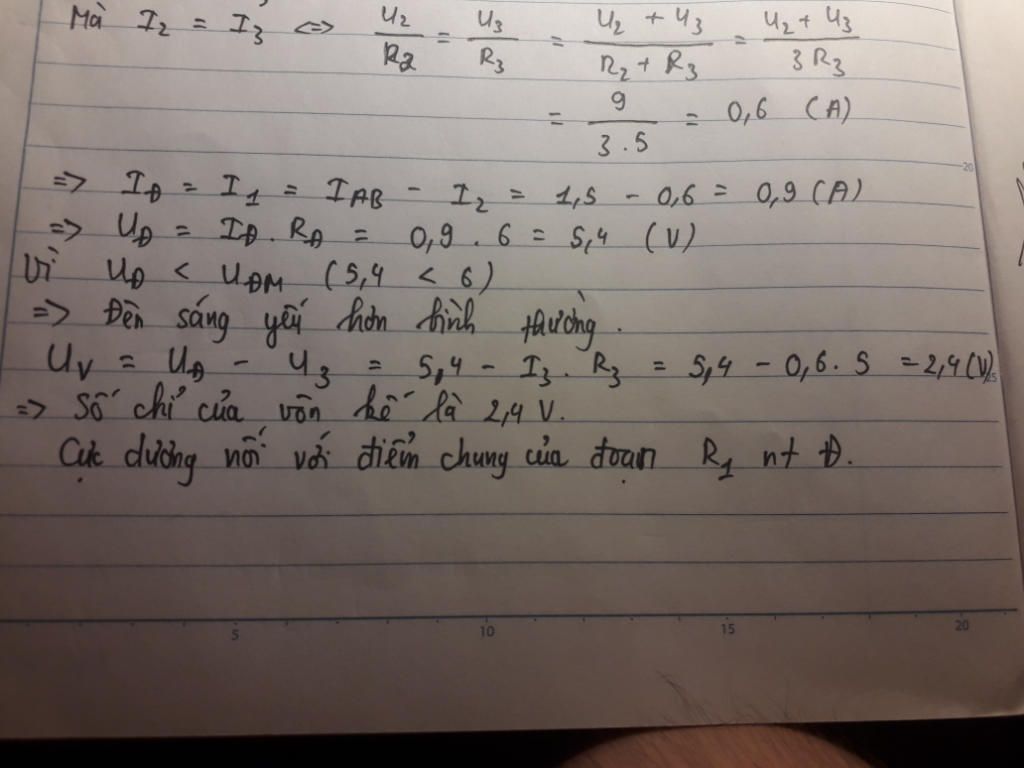 Mà I₂ = I₃ <=> U₂/R₂ = U₃/R₃ = (U₂ + U₃)/(R₂ + R₃) = (U₂ + U₃)/(3R₃)
= 9/(3.5) = 0,6 (A)
=> I_Đ = I₁ = I_AB - I₂ = 1,5 - 0,6 = 0,9 (A)
20
=> U_Đ = I_Đ . R_Đ = 0,9 . 6 = 5,4 (V)
Vì U_Đ < U_ĐM (5,4 < 6)
=> Đèn sáng yếu hơn bình thường.
U_V = U_Đ - U₃ = 5,4 - I₃ . R₃ = 5,4 - 0,6 . 5 = 2,4 (V)
=> Số chỉ của vôn kế là 2,4 V.
Cực dương nối với điểm chung của đoạn R₁ nt Đ.
5 10 15 20